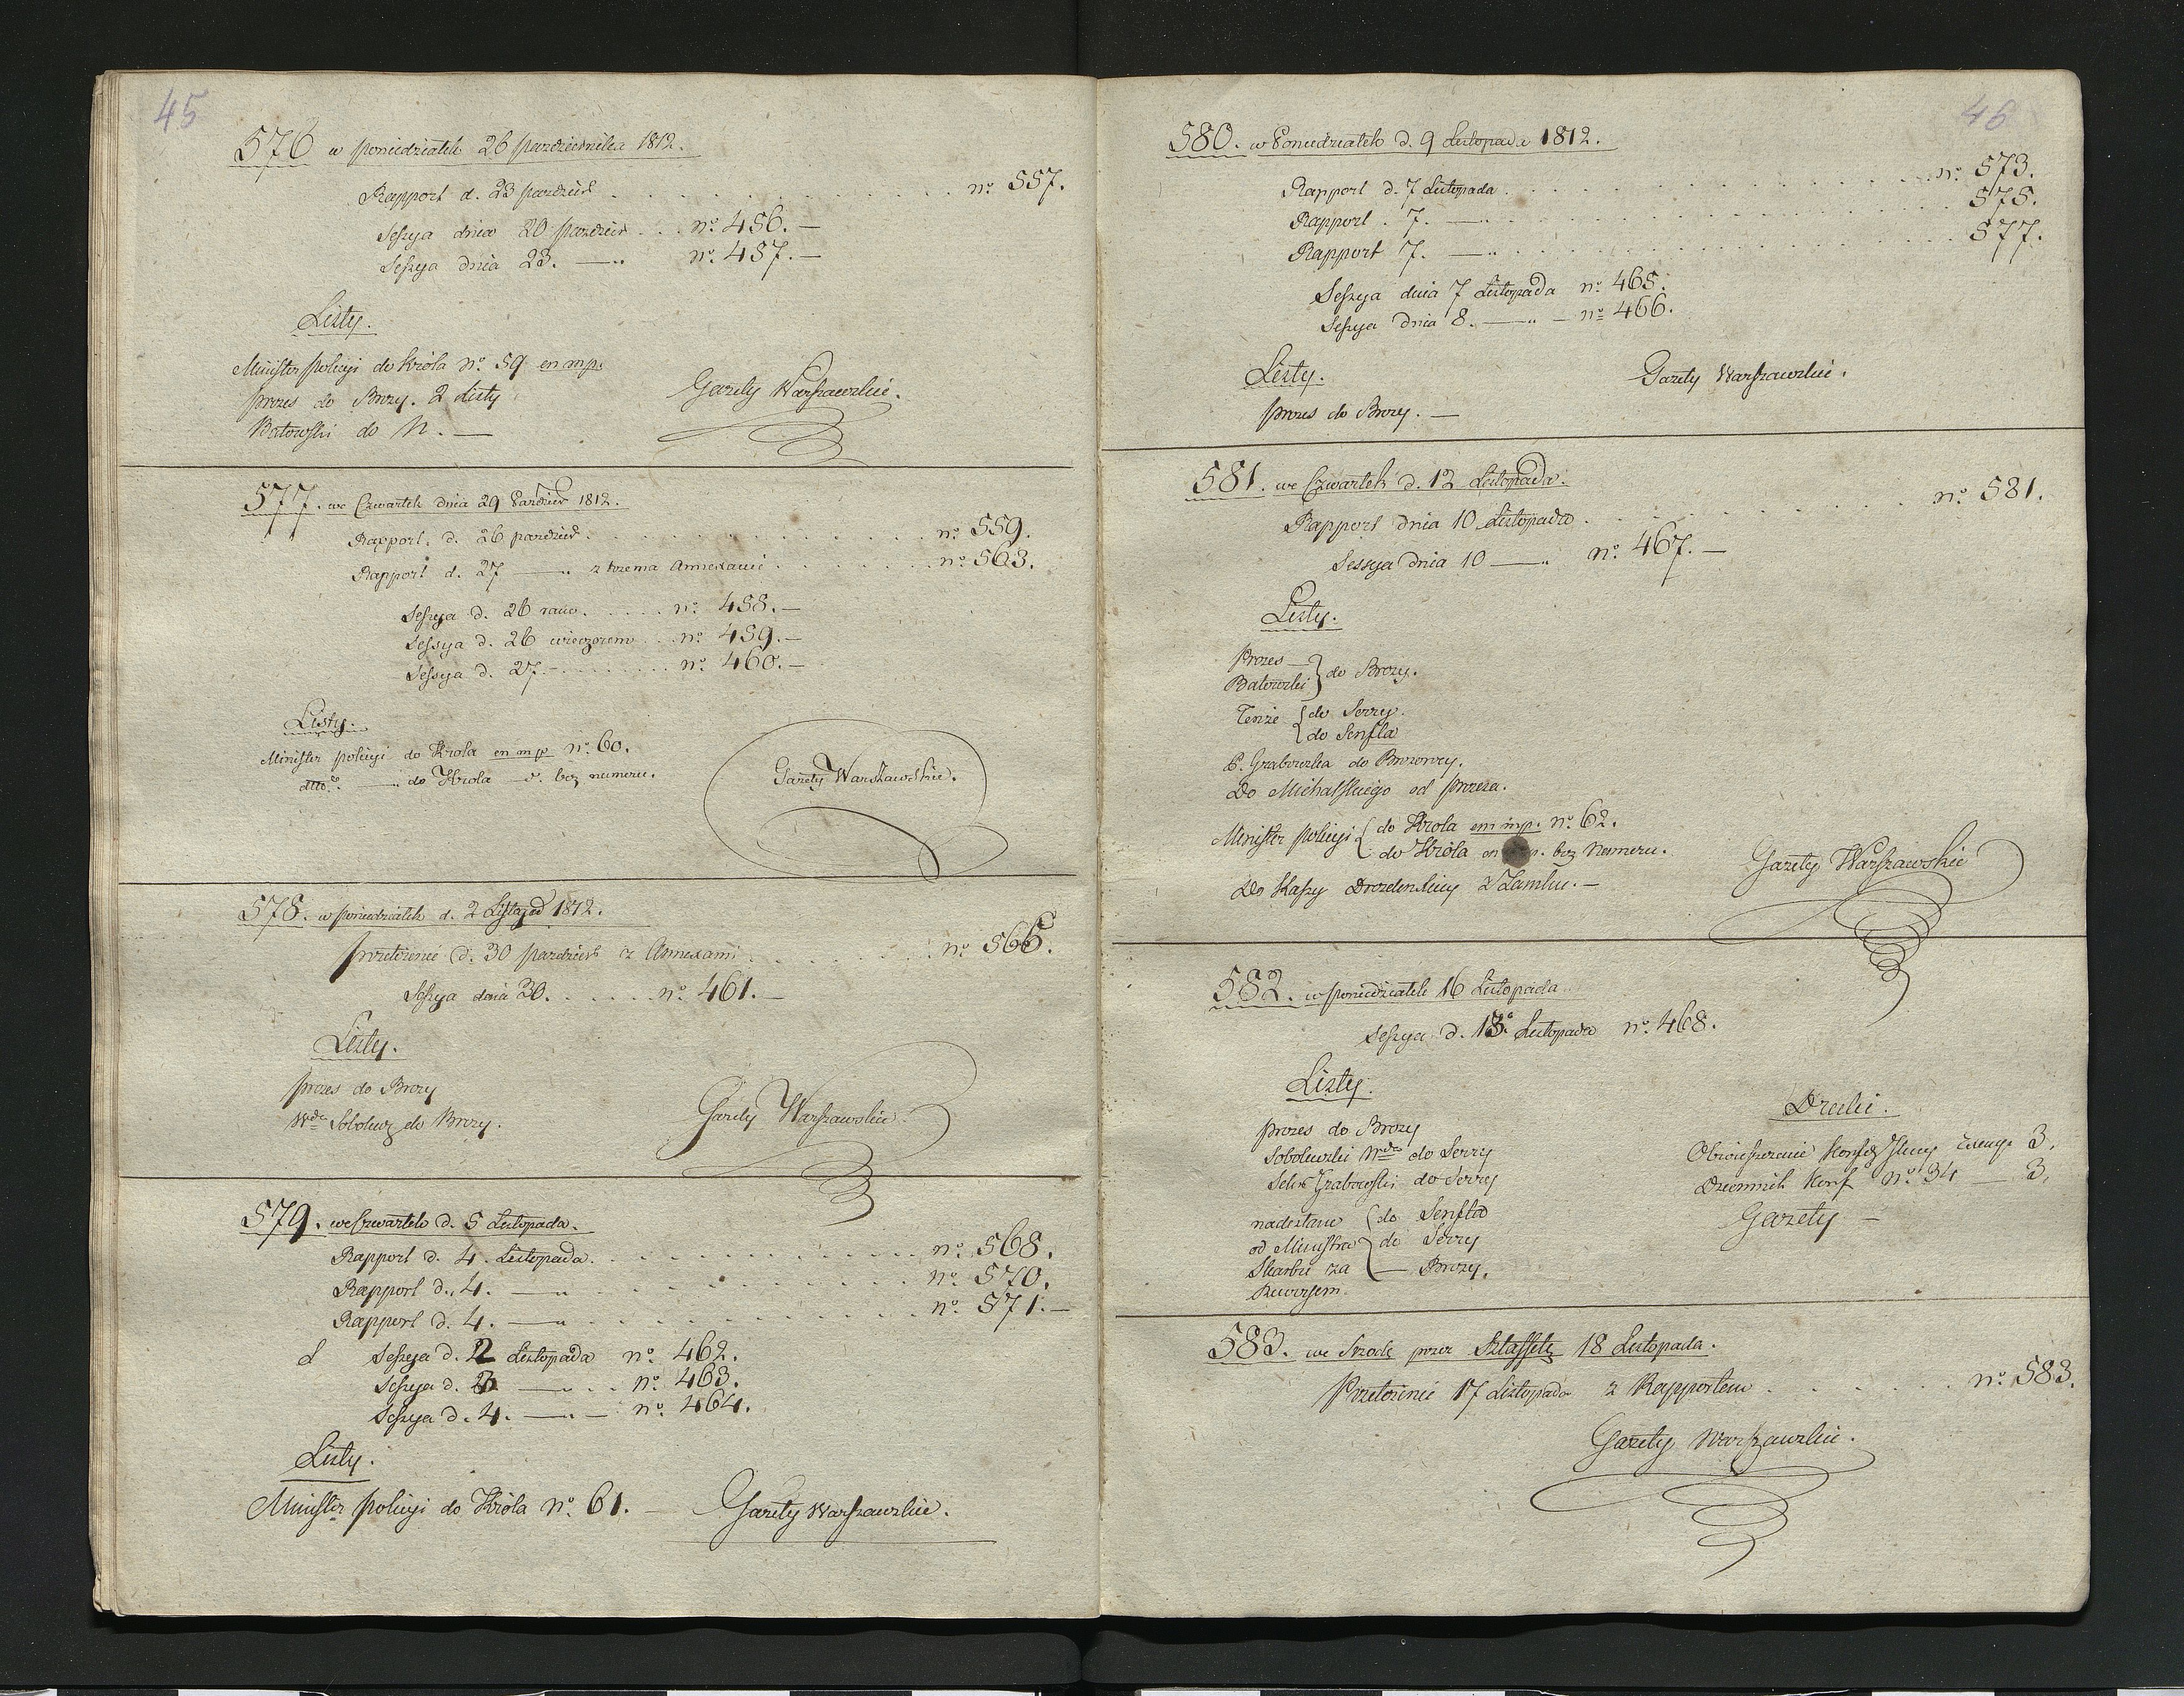 45
576 w poniedziałek 26 pazdziernika 1812.
Rapport d. 23 pazdzier . . . nº 557.
Sessya dnia 20 pazdzier . . . nº 456. —
Sessya dnia 23. —„ nº 457. —
Listy.
Minister policyi do Króla Nº 59 en mp.
prezes do Brezy. 2 Listy
Batowski do N. —
Gazety Warszawskie.
577. we Czwartek dnia 29 Pazdzier 1812.
Rapport. d. 26 pazdzier. . . . nº 559.
Rapport d. 27 —„ z trzema Annexami . . . nº 563.
Sessya d. 26 rano. . . . nº 458. —
Sessya d. 26 wieczorem . . nº 459. —
Sessya d. 27 - . . . nº 460. —
Listy.
Minister policyi do Krola en mp nº 60.
dtto —„ do Krola — bez numeru.
Gazety Warszawskie.
578. w poniedziałek d. 2 Listopad 1812.
przełozenie d. 30 pazdzier z Annexami . . . nº 566.
Sessya dnia 30. . . . nº 461. —
Listy.
prezes do Brezy
Wda Sobolew do Brezy.
Gazety Warszawskie.
579. we Czwartek d. 5 Listopada.
Rapport d. 4. Listopada. . . . nº 568.
Rapport d. 4. —„ . . . nº 570.
Rapport d. 4. —„ . . . nº 571. —
Sessya d. 2 Listopada nº 462.
Sessya d. —„ . . nº 463.
Sessya d. 4. —„ — nº 464.
Listy.
Minister policyi do Króla Nº 61. —
Gazety Warszawskie.
46
580. w Poniedziałek d. 9 Listopada 1812.
Rapport d. 7 Listopada . . . nº 573.
Rapport . 7. —„ . . . 575.
Rapport 7. —„ . . . 577.
Sessya dnia 7 Listopada nº 465.
Sessya dnia 8. —„ — nº 466.
Listy.
Gazety Warszawskie.
prezes do Brezy. —
581. we Czwartek d. 12 Listopada.
Rapport dnia 10 Listopada . . . nº 581.
Sessya dnia 10 —„ nº 467. —
Listy.
Prezes —
Batowski } do Brezy.
Tenże { do Serry.
{ do Senfta
P. Grabowska do Brezowey.
Do Michalskiego od prezesa.
Minister policyi { do Krola em mp. nº 62.
{ do Króla en mp. bez Numeru.
Do Kassy Drezdenskiey z Zamku. —
Gazety Warszawskie
582. w poniedziałek 16 Listopada
Sessya d. 13º Listopada nº 468.
Listy.
prezes do Brezy
Sobolewski Wda do Serry
Sekr Grabowski do Serry
nadesłane { do Senfta
od Ministra } do Serry
Skarbu za { — Brezy.
Rewersem.
Druki.
Obwieszczenie 3.
Dziennik Konf Nº 34 — 3.
Gazety —
583. we Srodę przez Sztaffetę 18 Listopada.
Przełozenie 17 Listopada z Rapportem . . . nº 583.
Gazety Warszawskie.